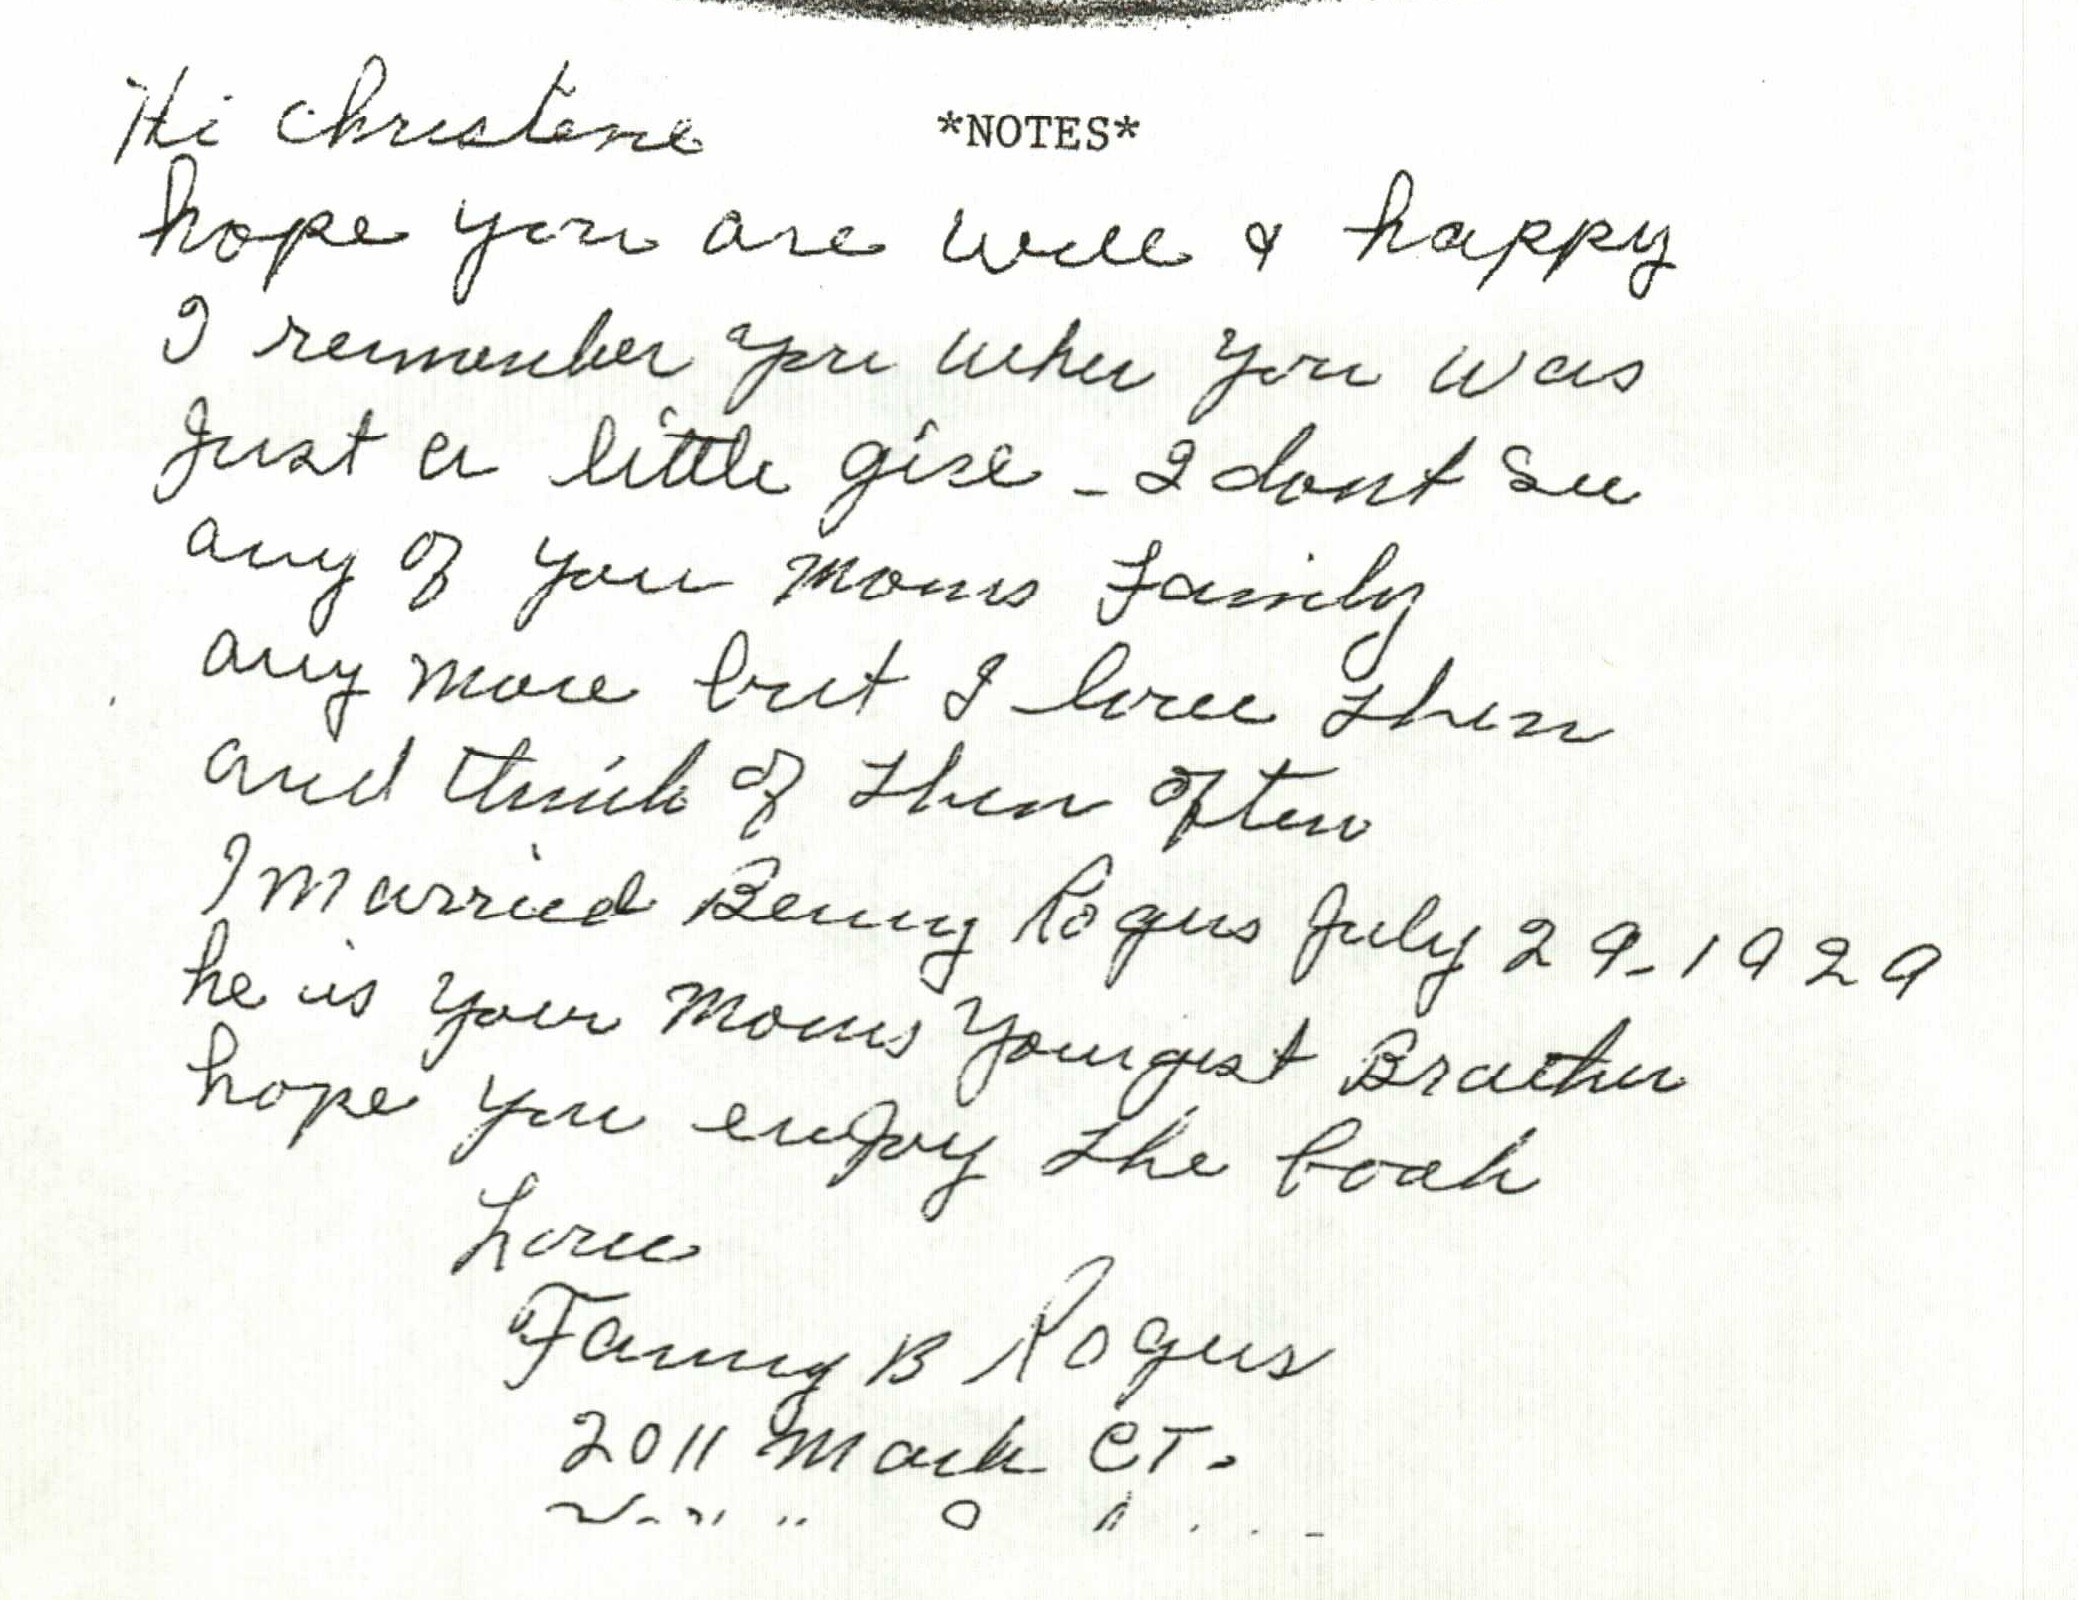 Hi Christene *NOTES*
hope you are well & happy
I remember you when you was
Just a little girl - I dont See
any of you Moms Family
any More but I love them
and think of them often
I Married Benny Rogers July 29-1929
he is your Moms Youngest Brother
hope you enjoy the book
Love
Fanny B Rogers
2011 Mark CT.